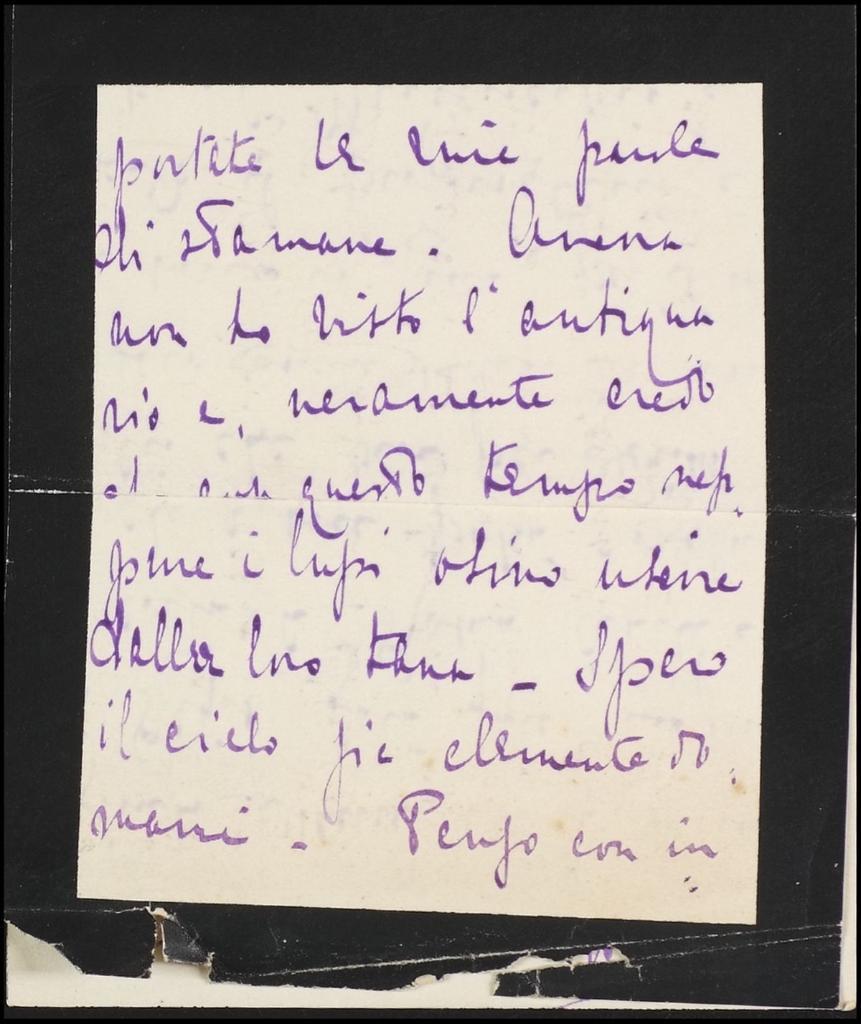 portate le mie parole
di stamane. Ancora
non ho visto l'antiqua
rio e, veramente credo
questo tempo nep-
pure i lupi osino uscire
dalla loro tana - Spero
il cielo sia clemente do-
mani - Penso con in=